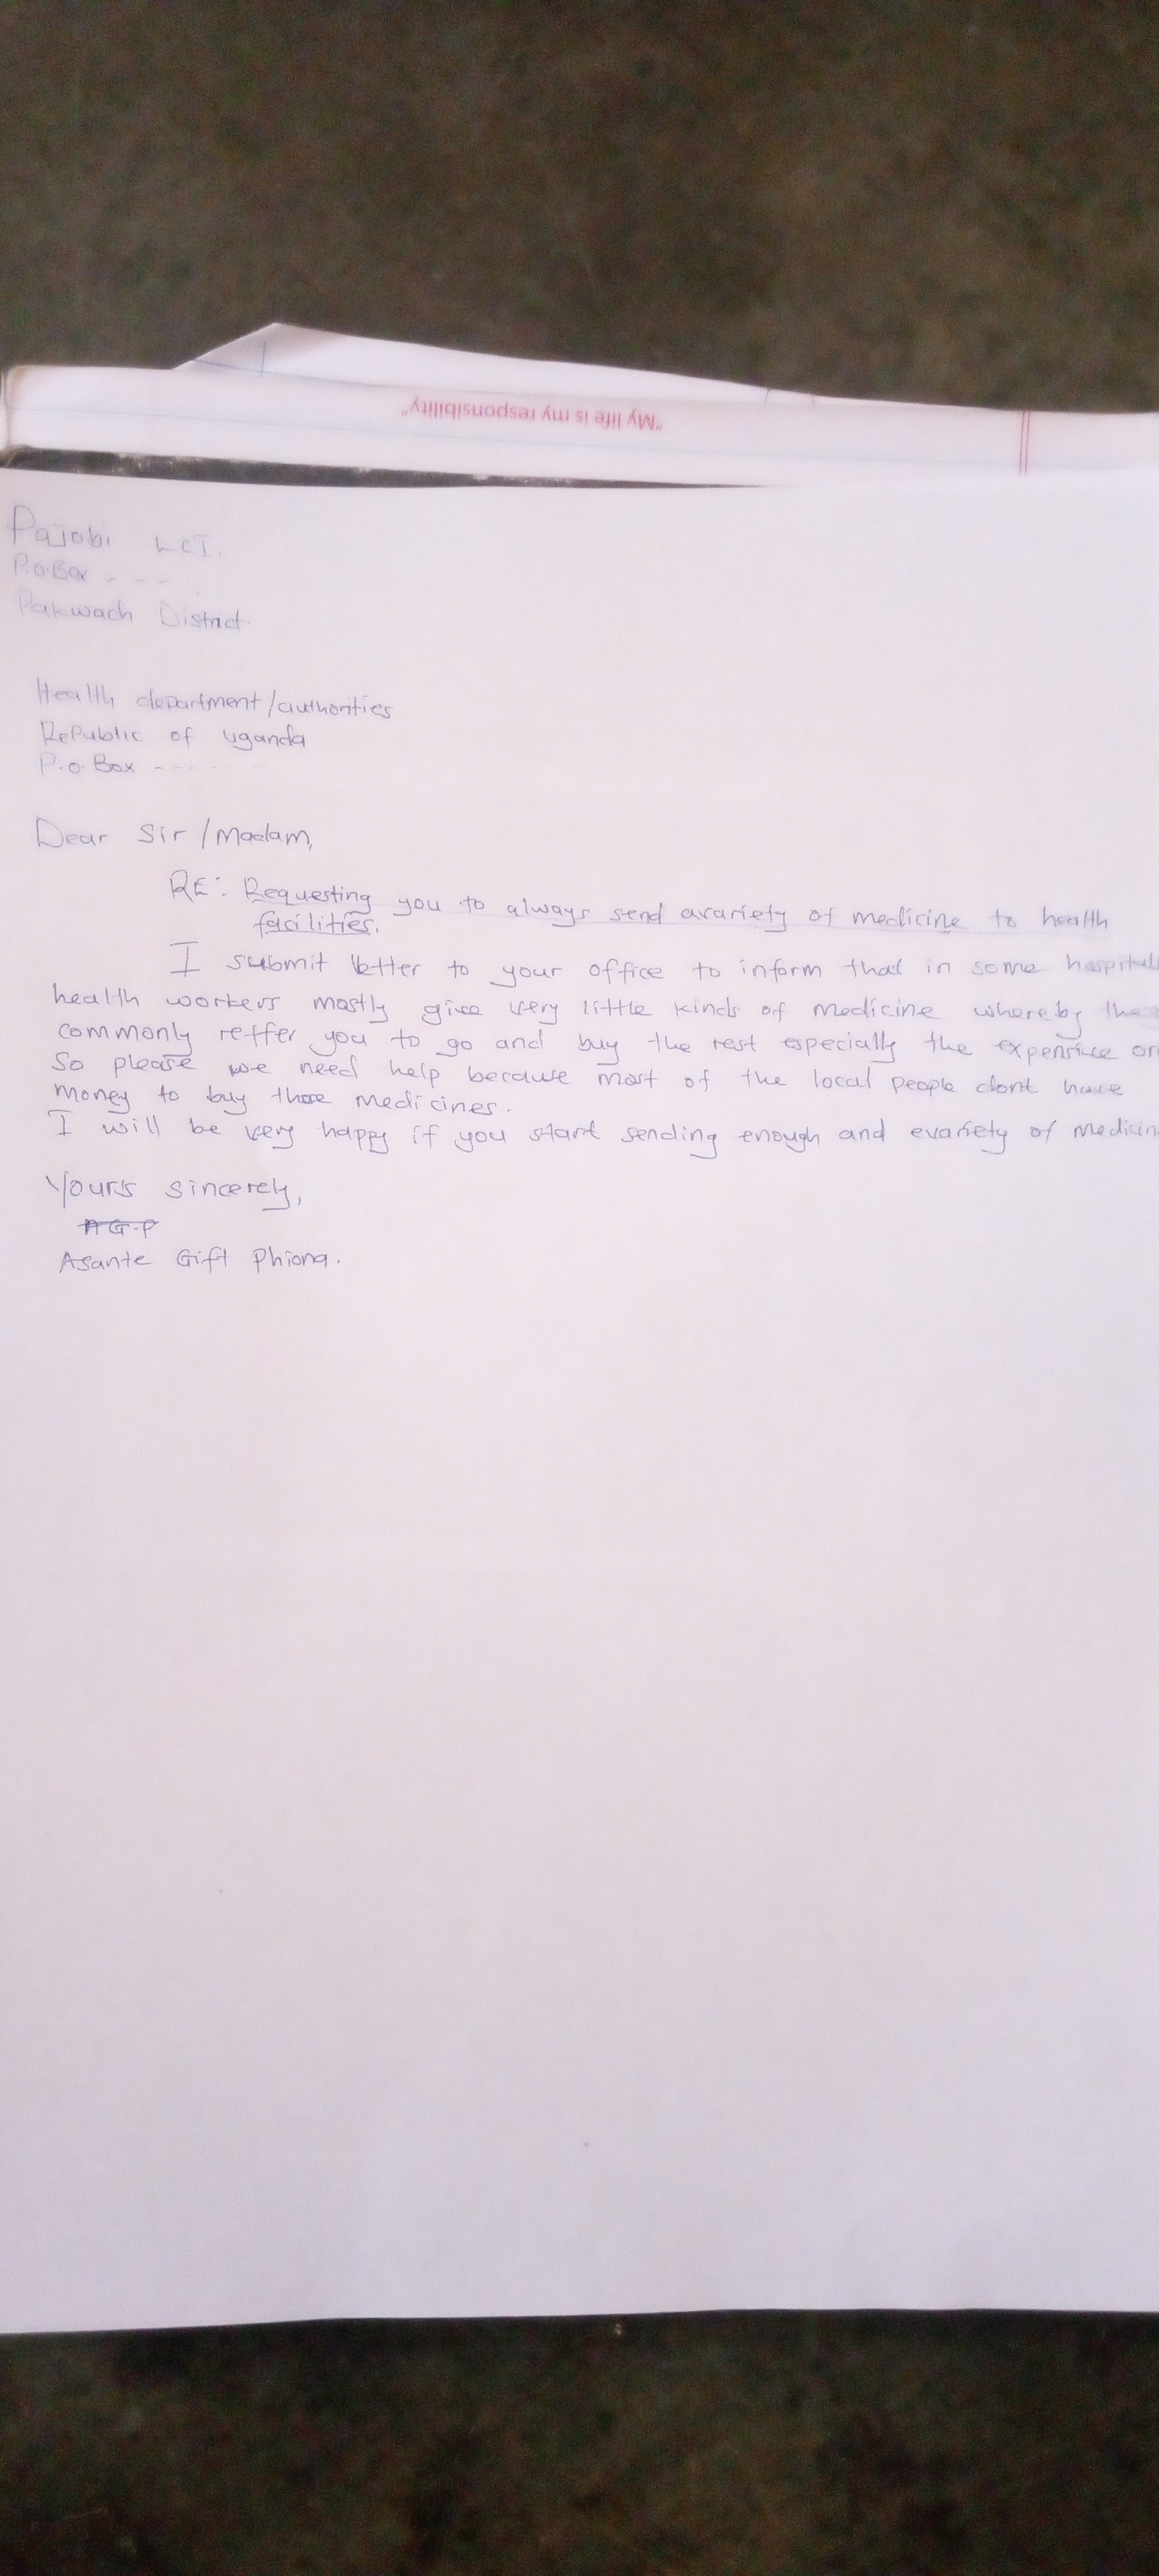 "My life is my responsibility"
Pajobi LCI.
P.O.Box - - -
Pakwach District
Health department/authorities
Republic of Uganda
P.o.Box - - - - -
Dear Sir/Madam,
RE: Requesting you to always send avariety of medicine to health
facilities.
I submit letter to your office to inform that in some hospitals
health workers mostly give very little kinds of medicine whereby they
commonly reffer you to go and buy the rest especially the expensive on
So please we need help because most of the local people dont have
money to buy those medicines.
I will be very happy if you start sending enough and evariety of medicin
Yours sincerely,
AGP
Asante Gift Phiona.